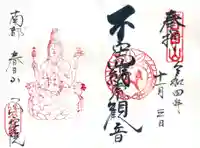 奉拝
令和四年
十一月三日
不空羂索観音
南都
春日山